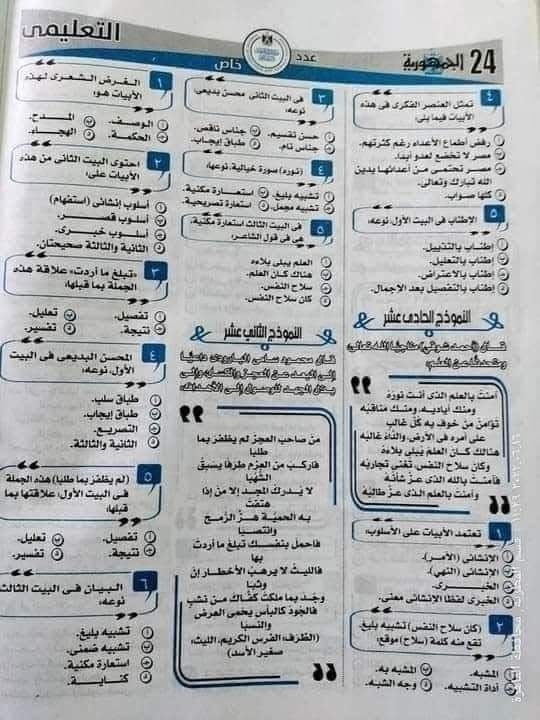 24 الجمهورية
عدد خاص
التعليمى
٤ تمثل العنصر الفكرى فى هذه الأبيات فيما يلى:
أ رفض أطماع الأعداء رغم كثرتهم.
ب مصر لا تخضع لعدو أبدا.
ج مصر تحتمى من أعدائها بدين
الله تبارك وتعالى.
د كلها صواب.
٥ الإطناب فى البيت الأول، نوعه:
أ إطناب بالتذييل.
ب إطناب بالتعليل.
ج إطناب بالاعتراض.
د إطناب بالتفصيل بعد الاجمال.
النموذج الحادى عشر
قال (أحمد شوقى) مناجيًا الله تعالى،
ومتحدثًا عن العلم:
آمنتُ بالعلم الذى أنت نورُهُ
ومنك أياديه، ومنك مناقبُه
تؤامن من خوف به كلُّ غالب
على أمره فى الأرض، والداءُ غالبُه
هنالك كان العلمُ يُبلى بلاءهُ
وكان سلاح النفس، تغنى تجاربُه
فآمنتُ بالله الذى عزَّ شأنُه
وآمنت بالعلم الذى عزَّ طالبُهُ
١ تعتمد الأبيات على الأسلوب:
أ الإنشائى (الأمر).
ب الإنشائى (النهى).
ج الخبرى.
د الخبرى لفظا الإنشائى معنى.
٢ (كان سلاح النفس) تشبيه بليغ،
تقع منه كلمة (سلاح) موقع:
أ المشبه.
ب المشبه به.
ج أداة التشبيه.
د وجه الشبه.
٣ فى البيت الثانى محسن بديعى، نوعه:
أ حسن تقسيم.
ب جناس ناقص.
ج جناس تام.
د طباق إيجاب.
٤ (نوره) صورة خيالية، نوعها:
أ تشبيه بليغ.
ب استعارة مكنية.
ج تشبيه مجمل.
د استعارة تصريحية.
٥ فى البيت الثالث استعارة مكنية،
هى فى قول الشاعر:
أ العلم يبلى بلاءه
ب هنالك كان العلم.
ج سلاح النفس.
د كان سلاح النفس.
النموذج الثانى عشر
قال محمود سامى البارودى داعيًا
إلى البعد عن العجز والكسل وإلى
بذل الجهد للوصول إلى الأهداف:
من صاحب العجز لم يظفر بما
طلبا
فاركب من العزم طرفًا يسبقُ
الشُّهُبا
لا يُدركُ المجد إلا من إذا
هتفت
به الحميَّة هزَّ الرُّمح
وانتصبا
فاحمل بنفسك تبلغ ما أردت
بها
فالليث لا يرهبُ الأخطارَ إن
وثبا
وجُد بما ملكت كفَّاك من نشبٍ
فالجُودُ كالبأس يحمى العرض
والنسبا
(الطَّرف: الفرس الكريم، الليث:
صغير الأسد)
١ الغرض الشعرى لهذه
الأبيات هو:
أ الوصف.
ب المدح.
ج الحكمة.
د الهجاء.
٢ احتوى البيت الثانى من هذه
الأبيات على:
أ أسلوب إنشائى (استفهام)
ب أسلوب قصر.
ج أسلوب خبرى.
د الثانية والثالثة صحيحتان.
٣ «تبلغ ما أردت» علاقة هذه
الجملة بما قبلها:
أ تفصيل.
ب تعليل.
ج نتيجة.
د تفسير.
٤ المحسن البديعى فى البيت
الأول، نوعه:
أ طباق سلب.
ب طباق إيجاب.
ج التصريع.
د الثانية والثالثة.
٥ (لم يظفر بما طلبا) هذه الجملة
فى البيت الأول، علاقتها بما
قبلها:
أ تفصيل.
ب تعليل.
ج نتيجة.
د تفسير.
٦ البيان فى البيت الثالث
نوعه:
أ تشبيه بليغ.
ب تشبيه ضمنى.
ج استعارة مكنية.
د كناية.